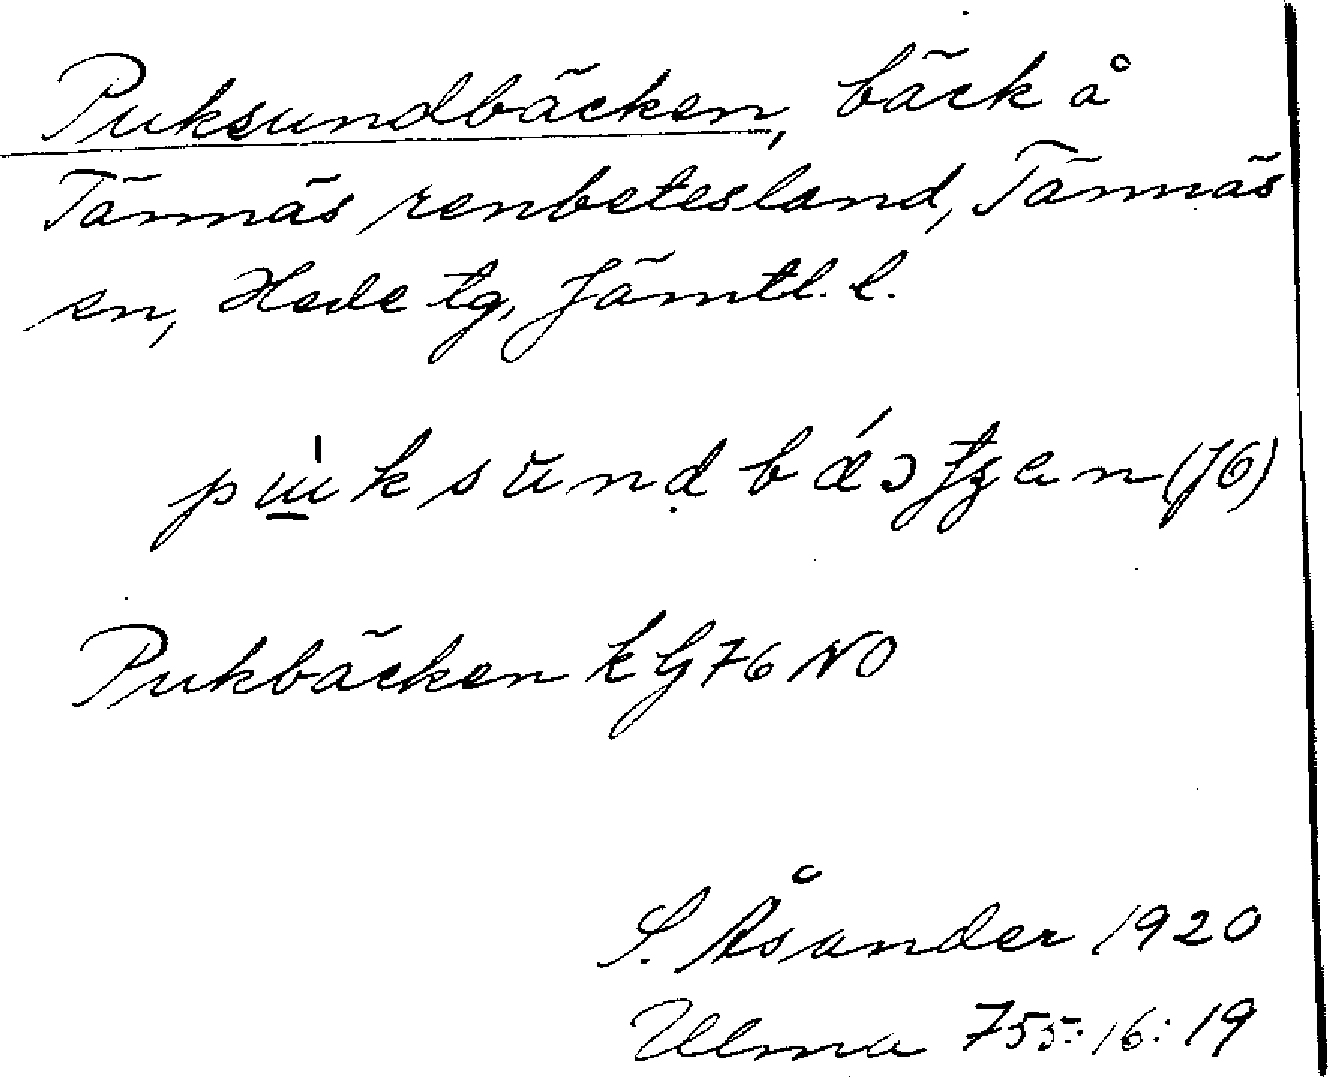 Puksundbäcken, bäck å
Tännäs renbetesland, Tännäs
sn, Hede tg, Jämtl. l.
Pukbäcken kG 76 NO
S. Åsander 1920
Ulma 755:16:19